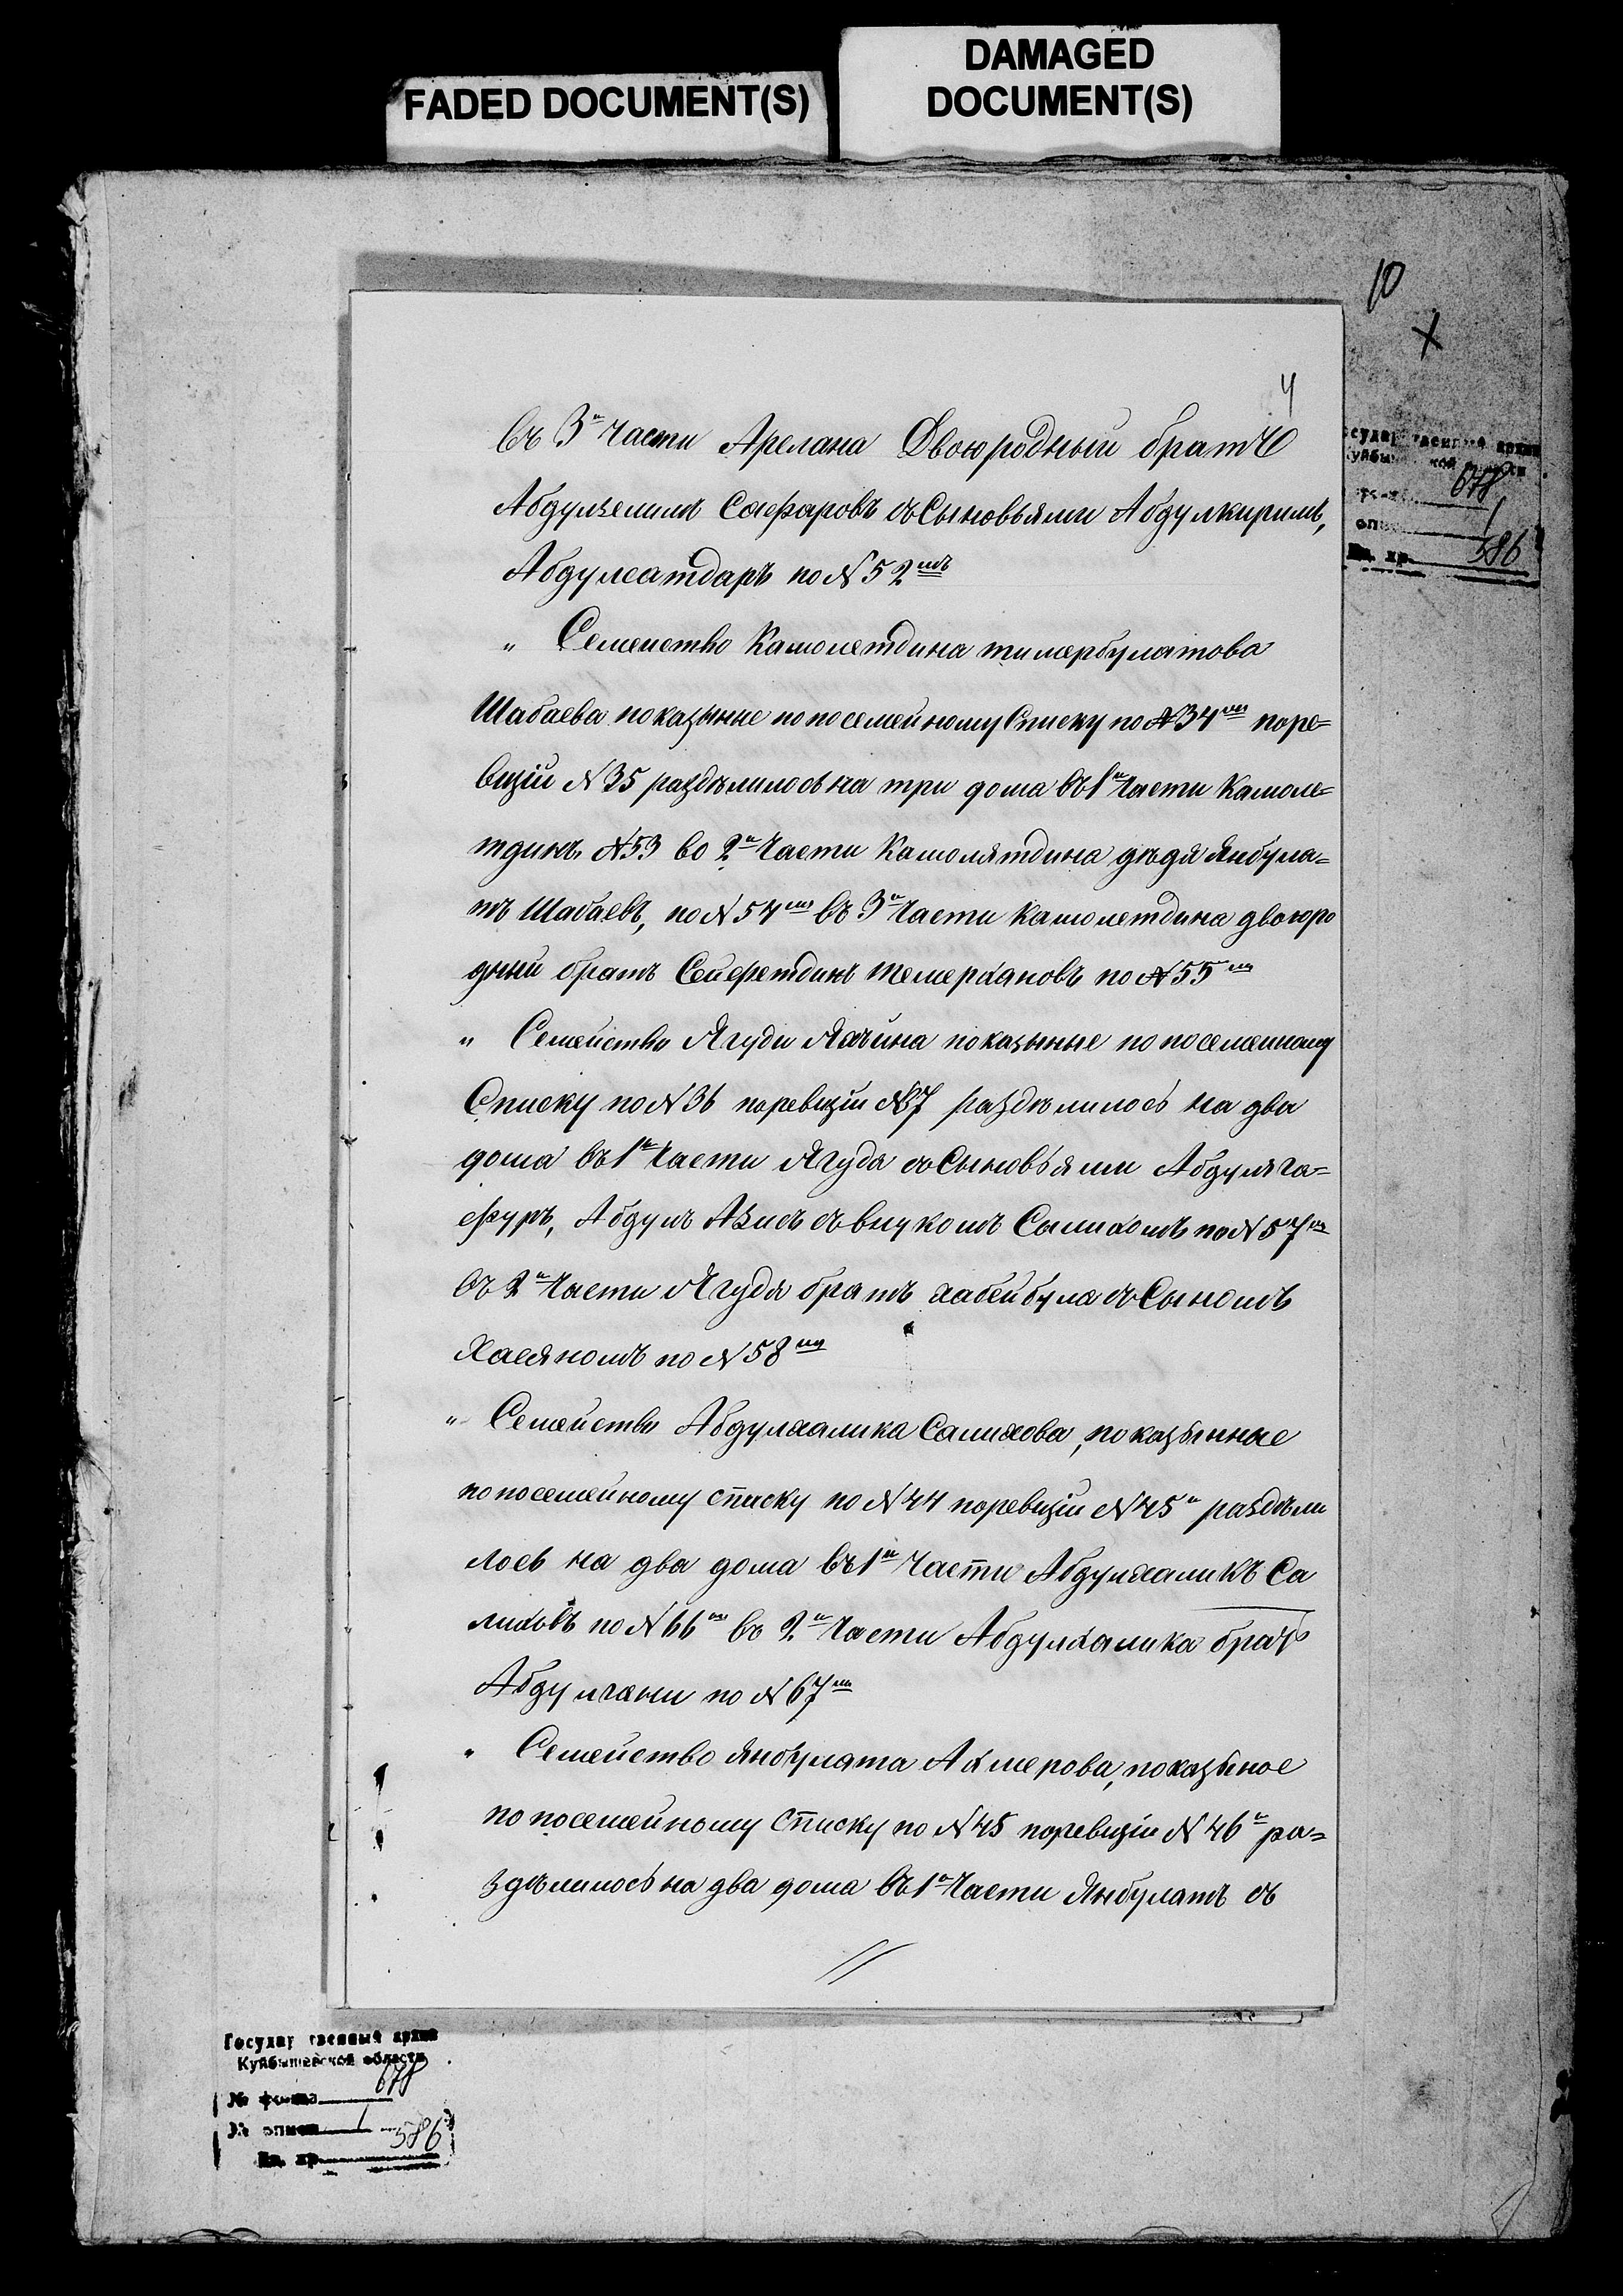 FADED DOCUMENT(S)
DAMAGED
DOCUMENT(S)
10
4
въ 3й части Арслана Двоюродный братъ
Абдулзелилъ Сафаровъ съ Сыновьями Абдулкиримъ,
Абдулсатдаръ по № 52мъ
" Семейство Камолетдина тимербулатова
Шабаева показыние по посемейному Списку по № 34мъ поре=
визiи № 35 раздѣлилось на три дома въ 1й части Камоле=
тдинъ № 53 во 2й части Камолятдина дѣдя Янбула=
тъ Шабаевъ, по № 54мъ въ 3й части Камолетдина двоюро
дный братъ Сейфетдинъ темерхановъ по № 55мъ
" Семейство Ягуди показыные по посемейному
Списку по № 36 поревизiи № 37 раздѣлилось на два
дома въ 1й части Ягудя съ Сыновьями Абдуляга=
фуръ, Абдулъ Азисъ съ внукомъ Салихомъ по № 57мъ
въ 2й части Ягудя братъ хабейбула съ Сыномъ
Хасяномъ по № 58мъ
" Семейство Абдулхалика Салихова, показыные
по посемейному списку по № 44 поревизiи № 45й раздѣли
лось на два дома въ 1й части Абдулхаликъ Са
лиховъ по № 66мъ въ 2й части Абдулхалика братъ
Абдулгани по № 67мъ
" Семейство Янбулата Ахмерова, показыное
по посемейному списку по № 45 поревизiи № 46й ра=
здѣлилось на два дома въ 1й части Янбулатъ съ
Государственный архив
Куйбышевской области
№ фонда 678
№ описи 1
Ед. хр. 586
Государственный архив
Куйбышевской области
№ фонда 678
№ описи 1
Ед. хр. 586